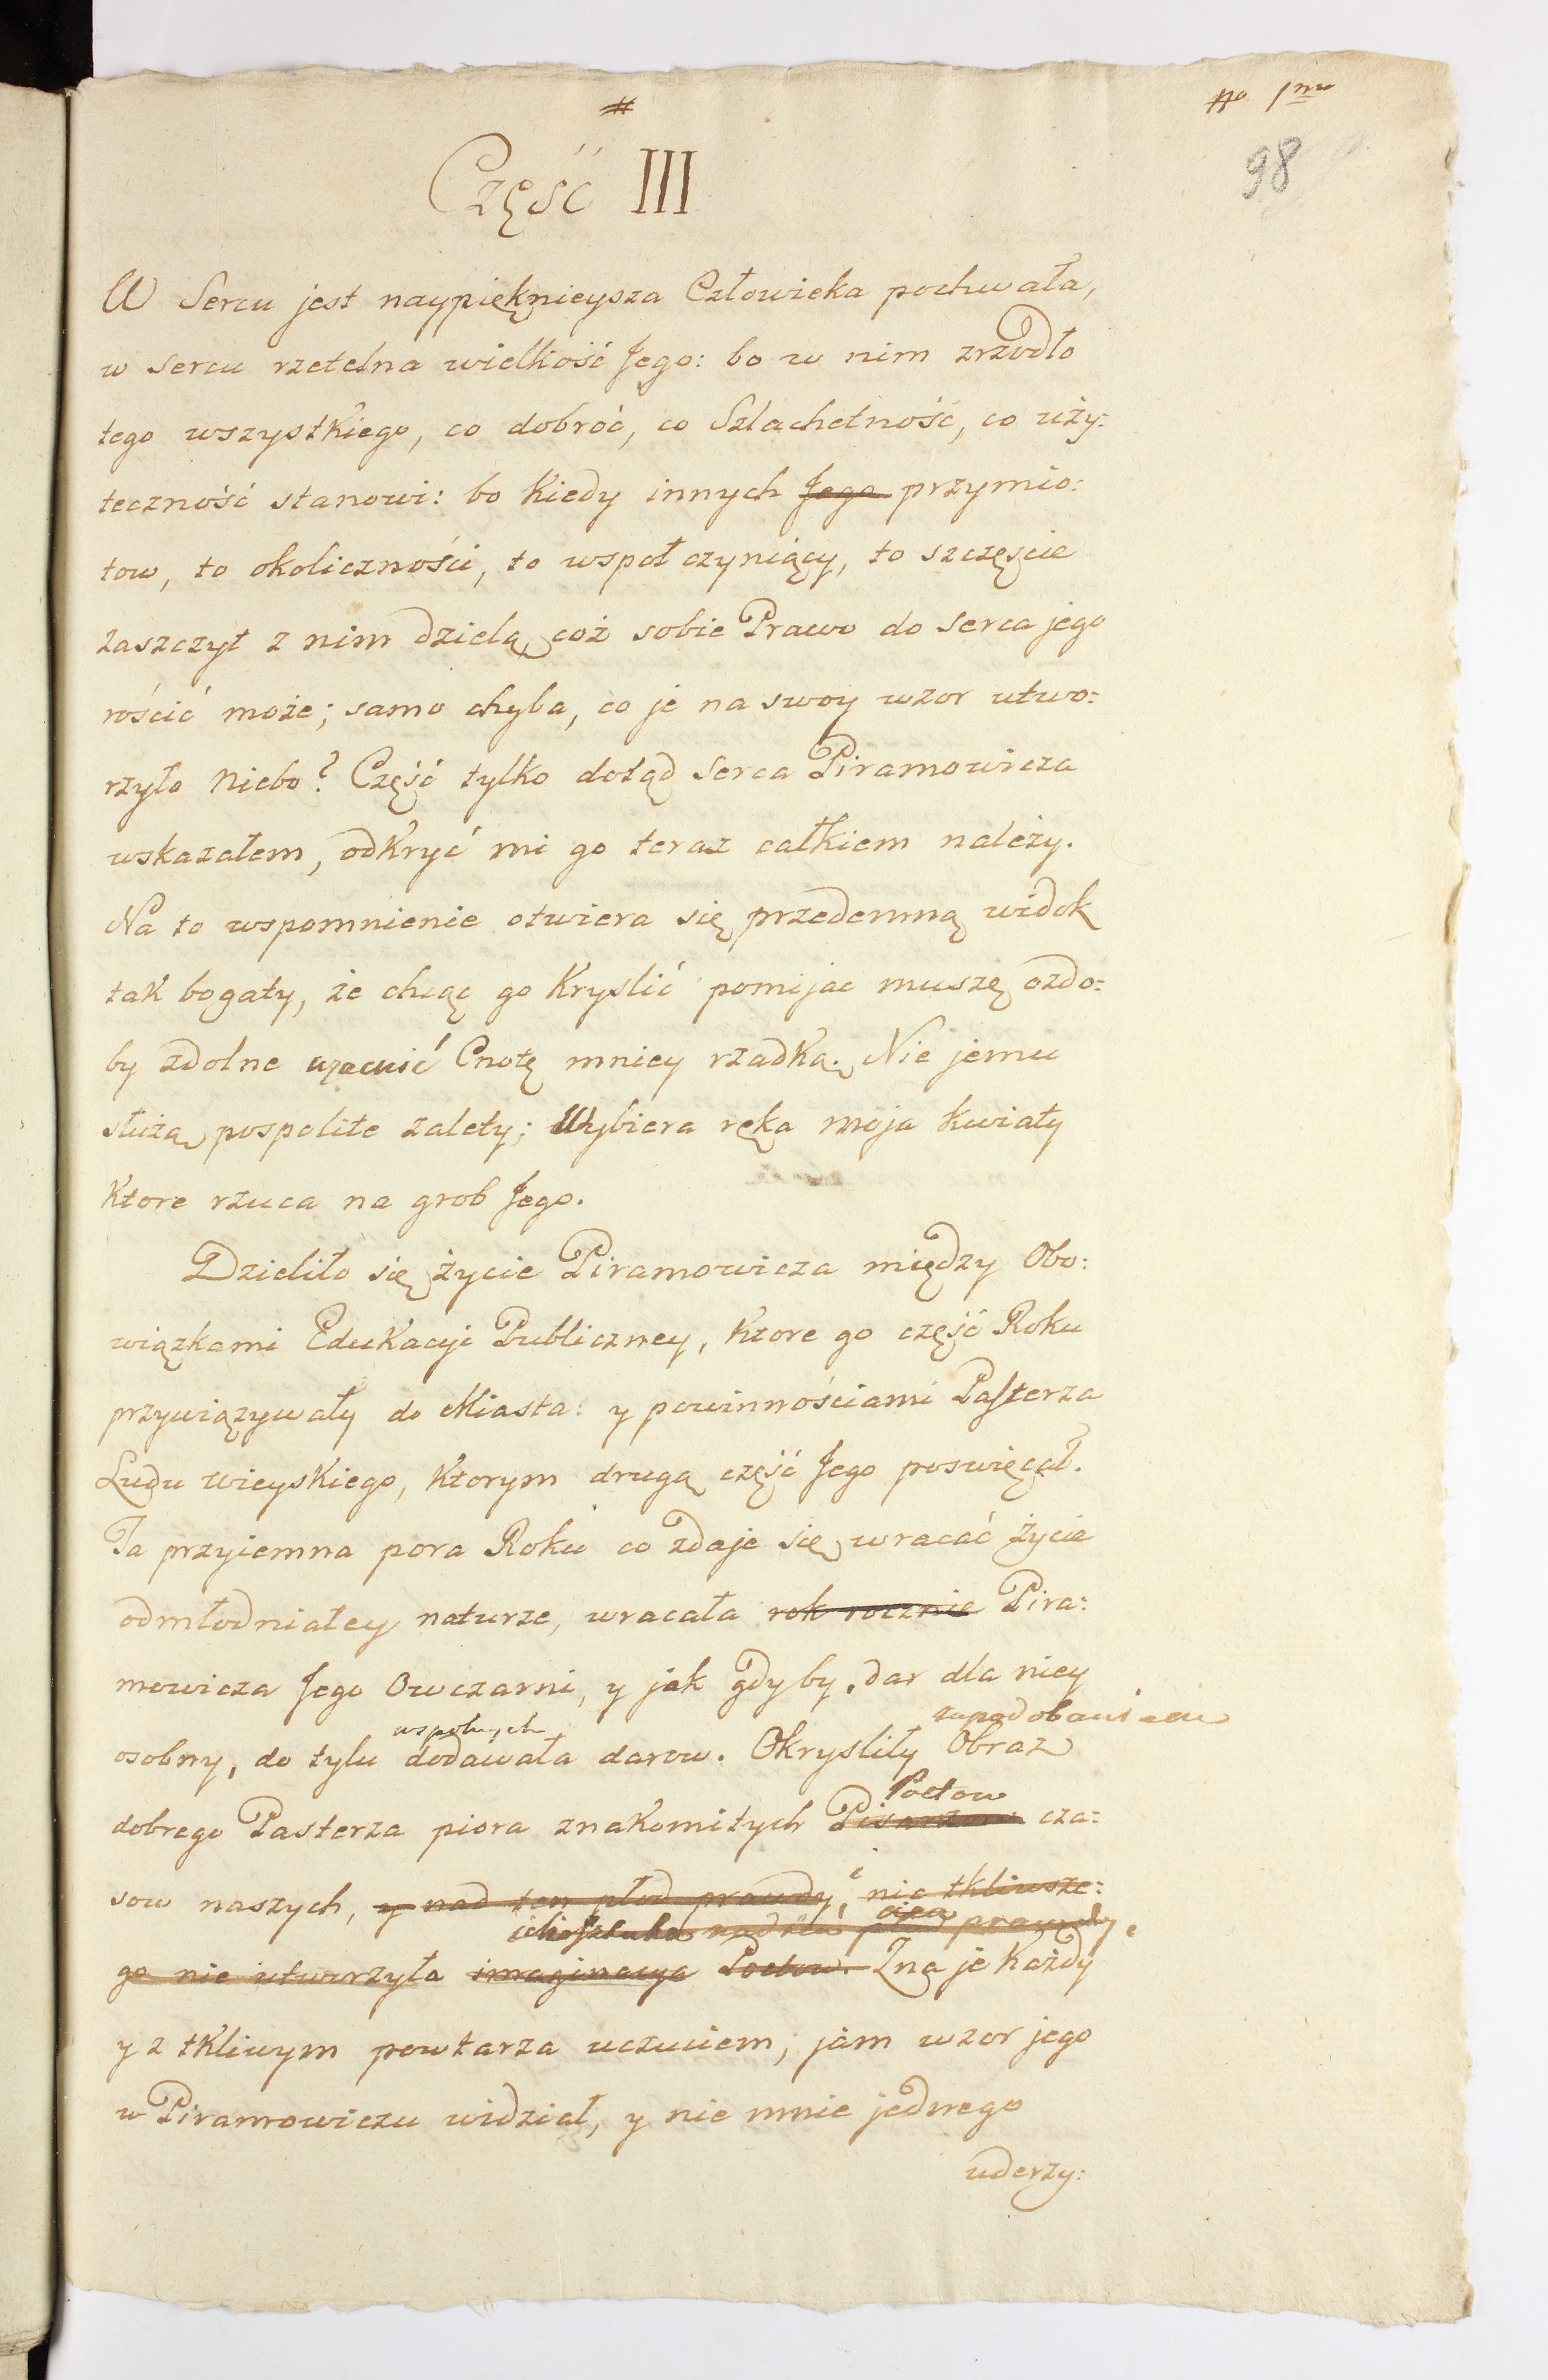 #
No 1mo
98
Część III
W Sercu jest naypięknieysza Człowieka pochwała,
w sercu rzetelna wielkość Jego: bo w nim zrzodło
tego wszystkiego, co dobróć, co Szlachetność, co uży:
teczność stanowi: bo Kiedy innych Jego przymio:
tow, to okoliczności, to wspoł czyniący, to szczęście
zaszczyt z nim dzielą, coż sobie Prawo do serca jego
rościć może; samo chyba, co je na swoy wzor utwo:
rzyło Niebo? Część tylko dotąd serca Piramowicza
wskazałem, odKryć mi go teraz całkiem należy.
Na to wspomnienie otwiera się przedemną widok
tak bogaty, że chcąc go Kryslić pomijac muszę ozdo:
by zdolne uzacnić Cnotę mniey rzadką. Nie jemu
służą pospolite zalety; Wybiera ręka moja kwiaty
Ktore rzuca na grob Jego.
Dzieliło się życie Piramowicza między Obo:
wiązkami EduKacyi Publiczney, Ktore go część Roku
przywiązywały do Miasta: y powinnościami Pasterza
Ludu wieyskiego, Ktorym drugą część Jego poswięcał.
Ta przyiemna pora Roku co zdaje się wracać życie
odmłodniałey naturze, wracała rok rocznie Pira:
mowicza Jego Owczarni, y jak gdyby, dar dla niey
wspolnych
osobny, do tylu dodawała darow. Okrysliły Obraz
Poetow
dobrego Pasterza piora znaKomitych Pisarzow cza:
sow naszych, y nad ten płod prawdy, nic tkliwsze:
ich sztuka nad prawdy
go nie utworzyła imaginacya Poetow. Zna je Każdy
y z tKliwym powtarza uczuciem, jam wzor jego
w Piramowiczu widział, y nie mnie jednego
uderzy: